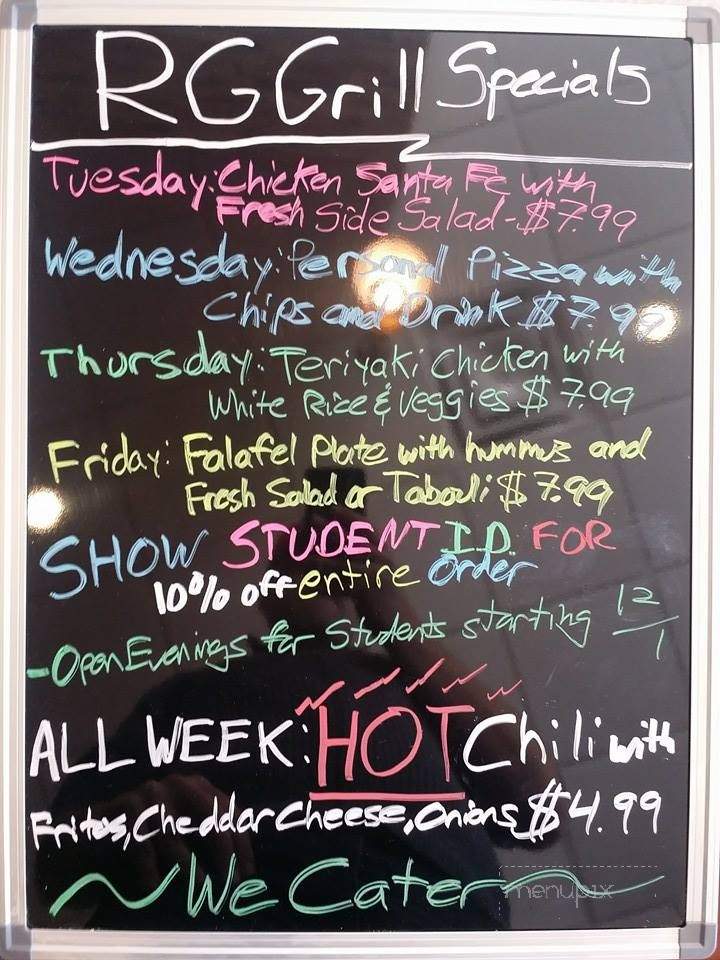 RG Grill Specials
Tuesday: Chicken Santa Fe with
Fresh Side Salad - $7.99
Wednesday: Personal Pizza with
Chips and Drink $7.99
Thursday: Teriyaki Chicken with
White Rice & Veggies $7.99
Friday: Falafel Plate with hummus and
Fresh Salad or Tabouli $7.99
SHOW STUDENT I.D. FOR
10% off entire order
- Open Evenings for Students starting 12/1
ALL WEEK: HOT Chili with
Fritos, Cheddar Cheese, Onions $4.99
~We Cater~
menupix